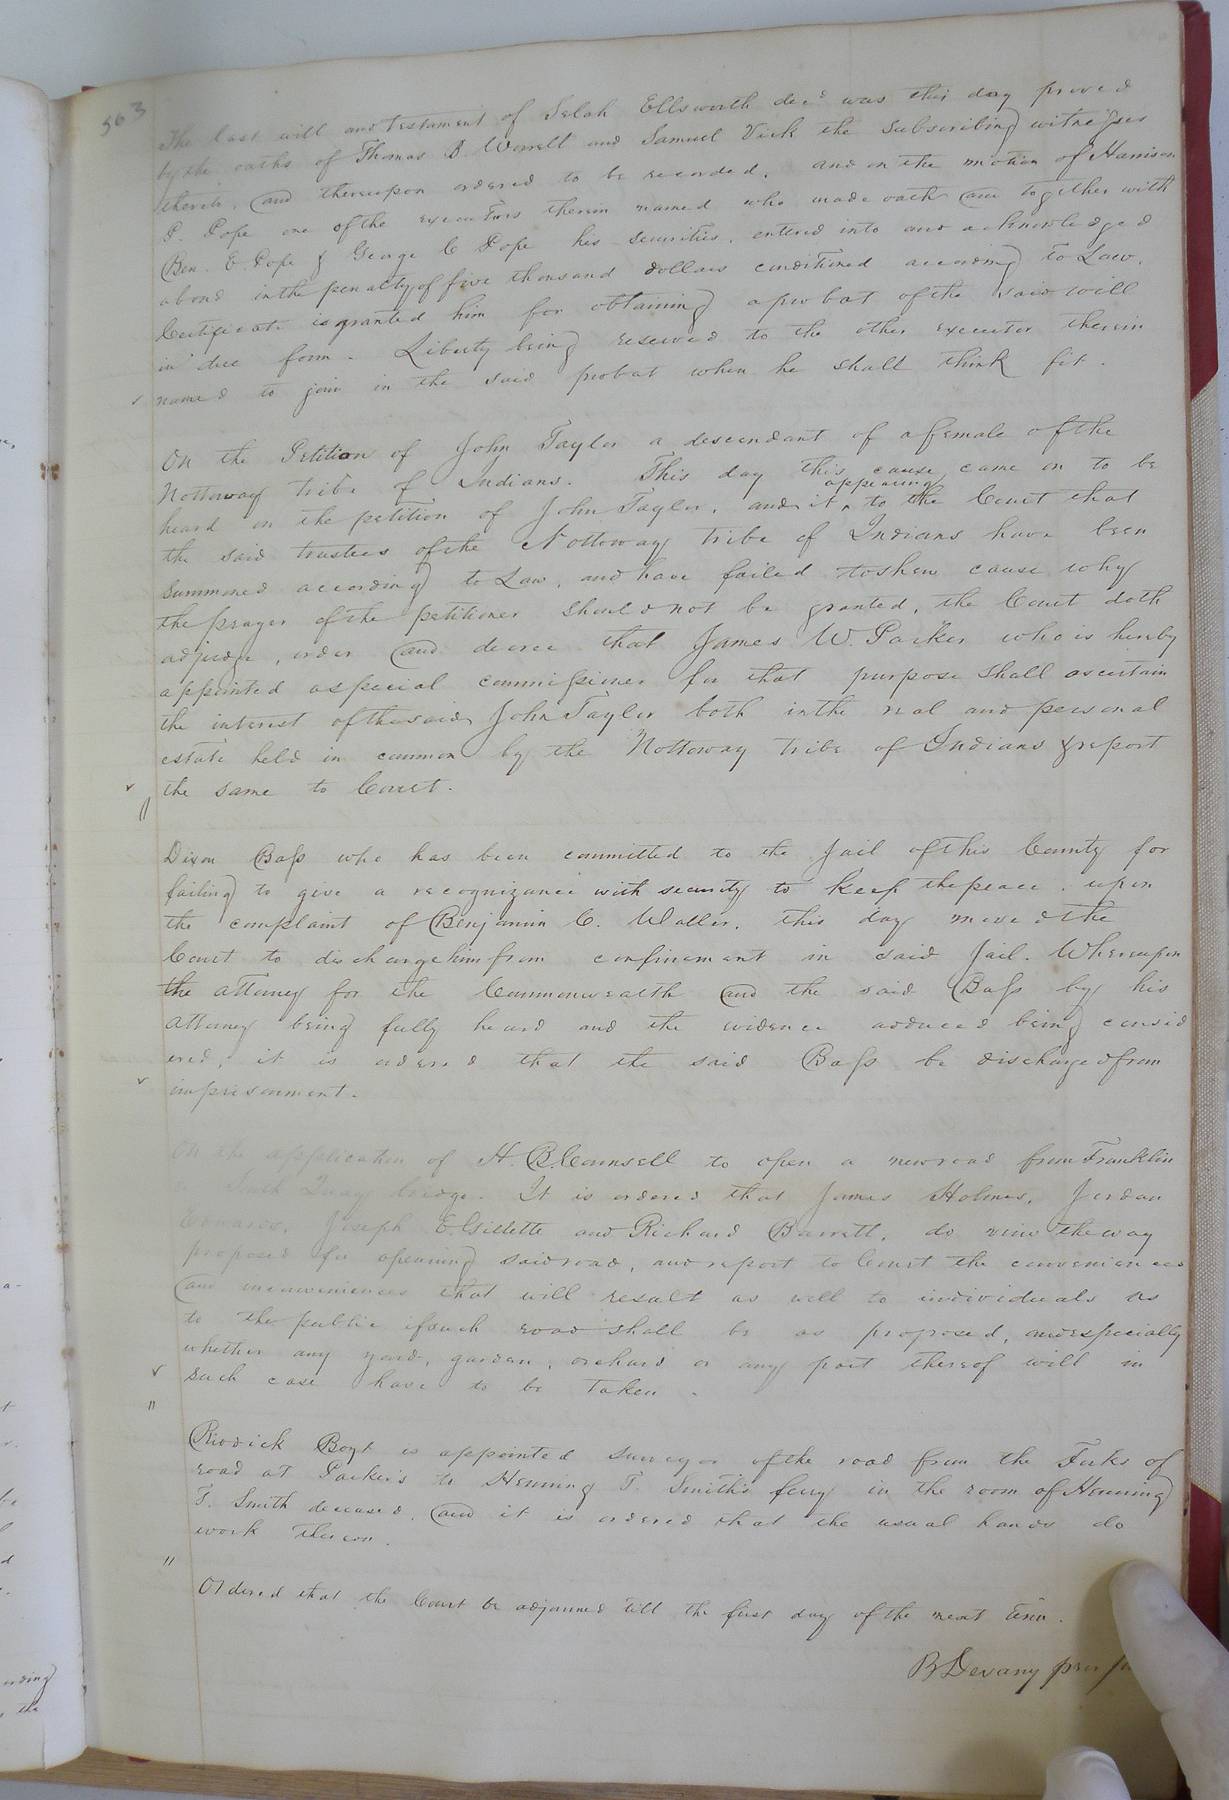 563
The last will and testament of Selah Ellsworth decd was this day proved
by the oaths of Thomas D. Worrell and Samuel Vick the subscribing witnesses
thereto, and thereupon ordered to be recorded, and on the motion of Harrison
P. Pope one of the executors therein named who made oath and together with
Ben. E. Pope & George C Pope his securities, entered into and acknowledged
a bond in the penalty of five thousand dollars conditioned according to Law.
Certificate is granted him for obtaining a probat of the said will
in due form. Liberty being reserved to the other executor therein
named to join in the said probat when he shall think fit.
On the Petition of John Taylor a descendant of a female of the
Nottoway tribe of Indians. This day this cause came on to be
heard on the petition of John Taylor, and it appearing to the Court that
the said trustees of the Nottoway tribe of Indians have been
summoned according to Law, and have failed to shew cause why
the prayer of the petitioner should not be granted, the Court doth
adjudge, order and decree that James W. Parker who is hereby
appointed a special commissioner for that purpose shall ascertain
the interest of the said John Taylor both in the real and personal
estate held in common by the Nottoway tribe of Indians & report
the same to Court.
Dixon Bass who has been committed to the Jail of this County for
failing to give a recognizance with security to keep the peace, upon
the complaint of Benjamin C. Waller, this day moved the
Court to discharge him from confinement in said Jail. Whereupon
the attorney for the Commonwealth and the said Bass by his
attorney being fully heard and the evidence adduced being consid
ered, it is ordered that the said Bass be discharged from
imprisonment.
On the application of H. B. Counsell to open a new road from Franklin
to South Quay bridge. It is ordered that James Holmes, Jordan
Edwards, Joseph E. Gillette and Richard Barrett, do view the way
proposed for opening said road, and report to Court the conveniences
and inconveniences that will result as well to individuals as
to the public if such road shall be as proposed, and especially
whether any yard, garden, orchard or any part thereof will in
such case have to be taken.
Riddick Boyt is appointed surveyor of the road from the Forks of
road at Parker's to Henning T. Smith's ferry in the room of Henning
T. Smith deceased, and it is ordered that the usual hands do
work thereon.
Ordered that the Court be adjourned till the first day of the next term.
B Devany